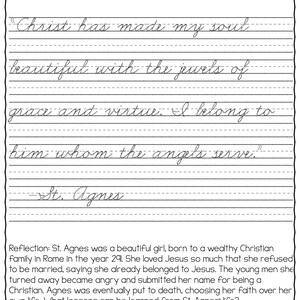 "Christ has made my soul
beautiful with the jewels of
grace and virtue. I belong to
him whom the angels serve."
-St. Agnes
Reflection: St. Agnes was a beautiful girl, born to a wealthy Christian
family in Rome in the year 291. She loved Jesus so much that she refused
to be married, saying she already belonged to Jesus. The young men she
turned away became angry and submitted her name for being a
Christian. Agnes was eventually put to death, choosing her faith over her